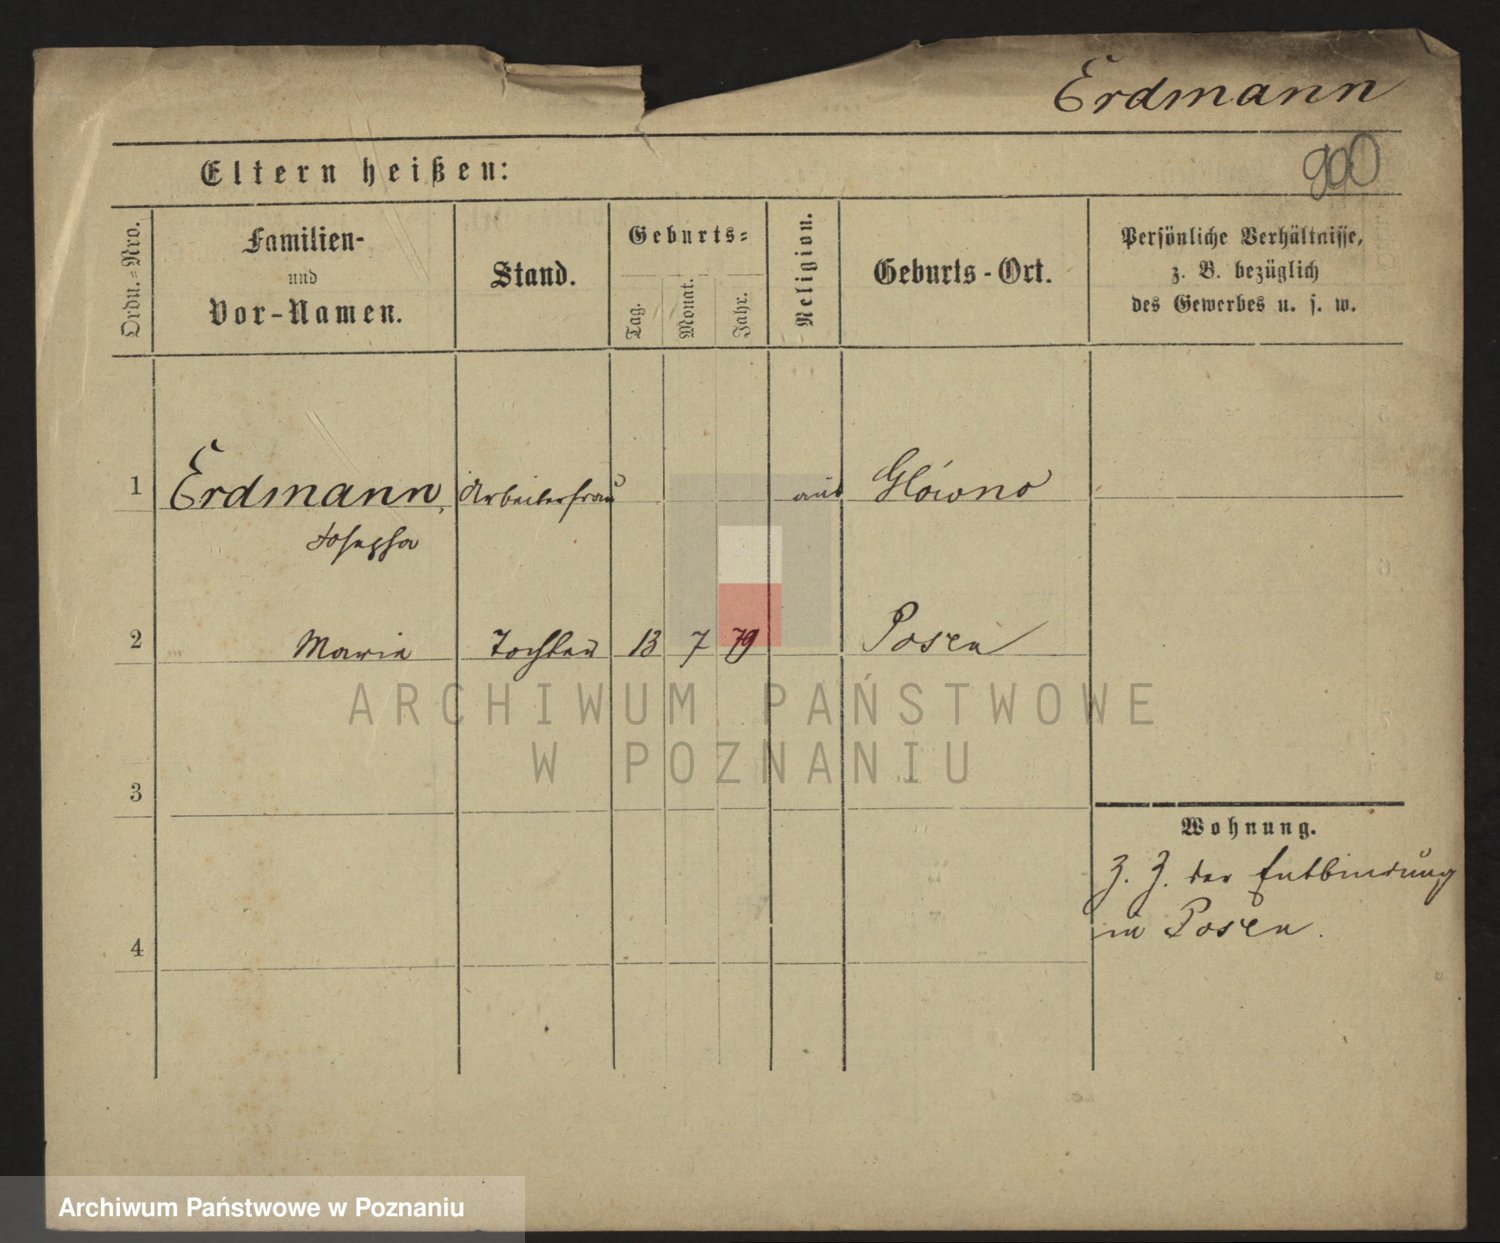 Erdmann
Eltern heißen:
890
Ordn.=Nro.
Familien-
und
Vor-Namen.
Stand.
Geburts=
Tag.
Monat.
Jahr.
Religion.
Geburts-Ort.
Persönliche Verhältnisse,
z. B. bezüglich
des Gewerbes u. s. w.
1 Erdmann, Arbeiterfrau aus Glówno
Josepha
2 Marie Tochter 13 7 79 Posen
ARCHIWUM PAŃSTWOWE
W POZNANIU
3
Wohnung.
z. Z. der Entbindung
in Posen.
4
Archiwum Państwowe w Poznaniu